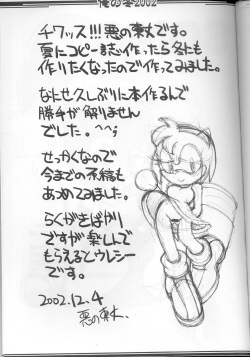 俺の冬2002
チワッス!!!悪の東大です。
夏にコピー誌作ったら冬にも
作りたくなったので作ってみました。
なんせ久しぶりに本作るんで
勝手が解りません
でした。^^;
せっかくなので
今までの不稿も
あつめてみました。
らくがきばかり
ですが楽しんで
もらえるとウレシー
です。
2002.12.4